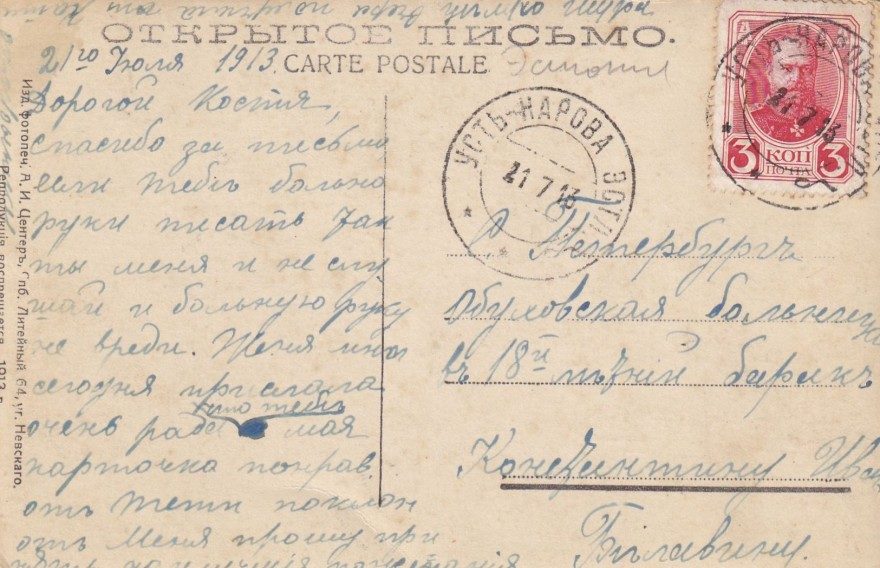 ОТКРЫТОЕ ПИСЬМО.
21го Июля 1913
CARTE POSTALE
Эстония
Дорогой Костя,
спасибо за письмо
если тебѣ больно
руки писать
ты меня и не слу
шай и больную руку
не вреди. Женя мнѣ
сегодня прислала
что тебѣ
очень рада моя
карточка понрав
отъ Тети поклон
отъ Меня прошу при
УСТЬ-НАРОВА ЭСТЛ
21 7 13
УСТЬ-НАРОВА
21 7 13
3 КОП 3
ПОЧТ
С Петербургъ
Обуховская больница
въ 18й лѣтній баракъ
Константину
Бѣлавину.
Изд. фотопеч. А. И. Центеръ, Спб. Литейный 64, уг. Невскаго.
Репродукція воспрещается. 1913 г.